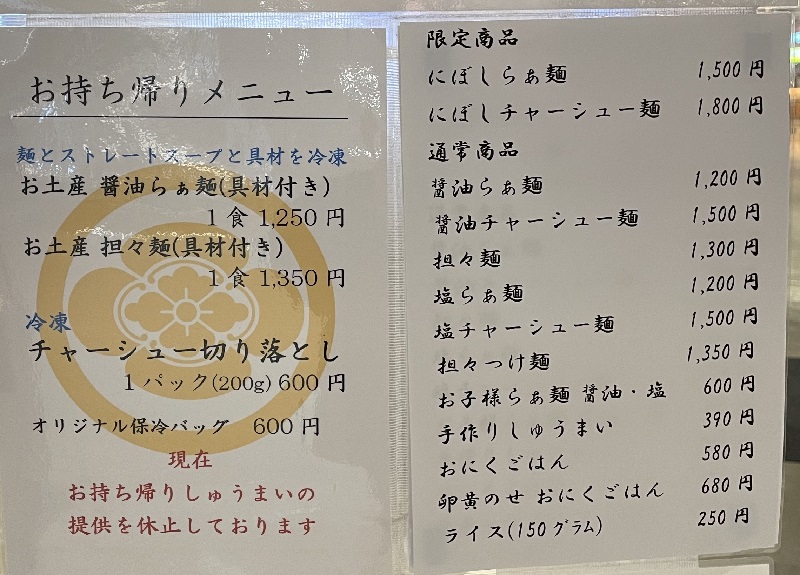 お持ち帰りメニュー
麺とストレートスープと具材を冷凍
お土産 醤油らぁ麺(具材付き)
1食 1,250円
お土産 担々麺(具材付き)
1食 1,350円
冷凍
チャーシュー切り落とし
1パック(200g) 600円
オリジナル保冷バッグ 600円
現在
お持ち帰りしゅうまいの
提供を休止しております
限定商品
にぼしらぁ麺 1,500円
にぼしチャーシュー麺 1,800円
通常商品
醤油らぁ麺 1,200円
醤油チャーシュー麺 1,500円
担々麺 1,300円
塩らぁ麺 1,200円
塩チャーシュー麺 1,500円
担々つけ麺 1,350円
お子様らぁ麺 醤油・塩 600円
手作りしゅうまい 390円
おにくごはん 580円
卵黄のせ おにくごはん 680円
ライス(150グラム) 250円